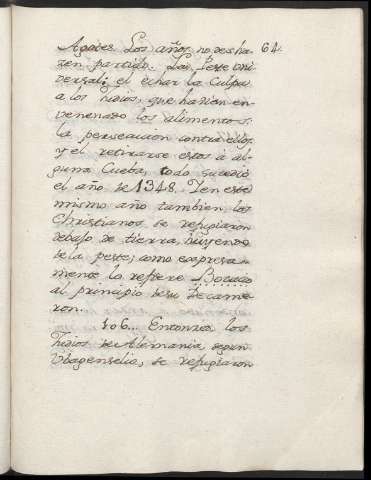 Agares. Los años no desha- 64.
zen partido. La Peste Uni-
versal; el echar la Culpa
a los Judios, que havian en-
venenado los alimentos:
la persecucion contra ellos,
y el retirarse estos à al-
guna Cueba, todo sucedió
el año de 1348. Y en este
mismo año tambien los
Christianos se refugiaron
debajo de tierra, huyendo
de la peste; como expresa-
mente lo refiere Bocacio
al principio de su Decame-
ron.
106... Entonces los
Judios de Alemania, segun
Vbagenselio, se refugiaron